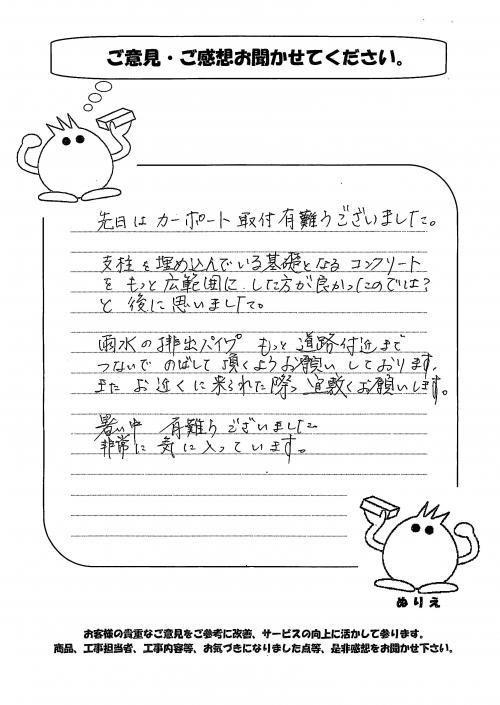 ご意見・ご感想お聞かせてください。
先日は カーポート 取付 有難うございました。
支柱を埋め込んでいる基礎となる コンクリート
を もっと 広範囲に した方が 良かったのでは?
と 後に 思いました。
雨水の 排出パイプ もっと 道路付近まで
つないで のばして 頂くよう お願い しております。
また お近くに 来られた際 宜敷く お願いします。
暑い中 有難うございました
非常に 気に入っています。
ぬりえ
お客様の貴重なご意見をご参考に改善、サービスの向上に活かして参ります。
商品、工事担当者、工事内容等、お気づきになりました点等、是非感想をお聞かせ下さい。